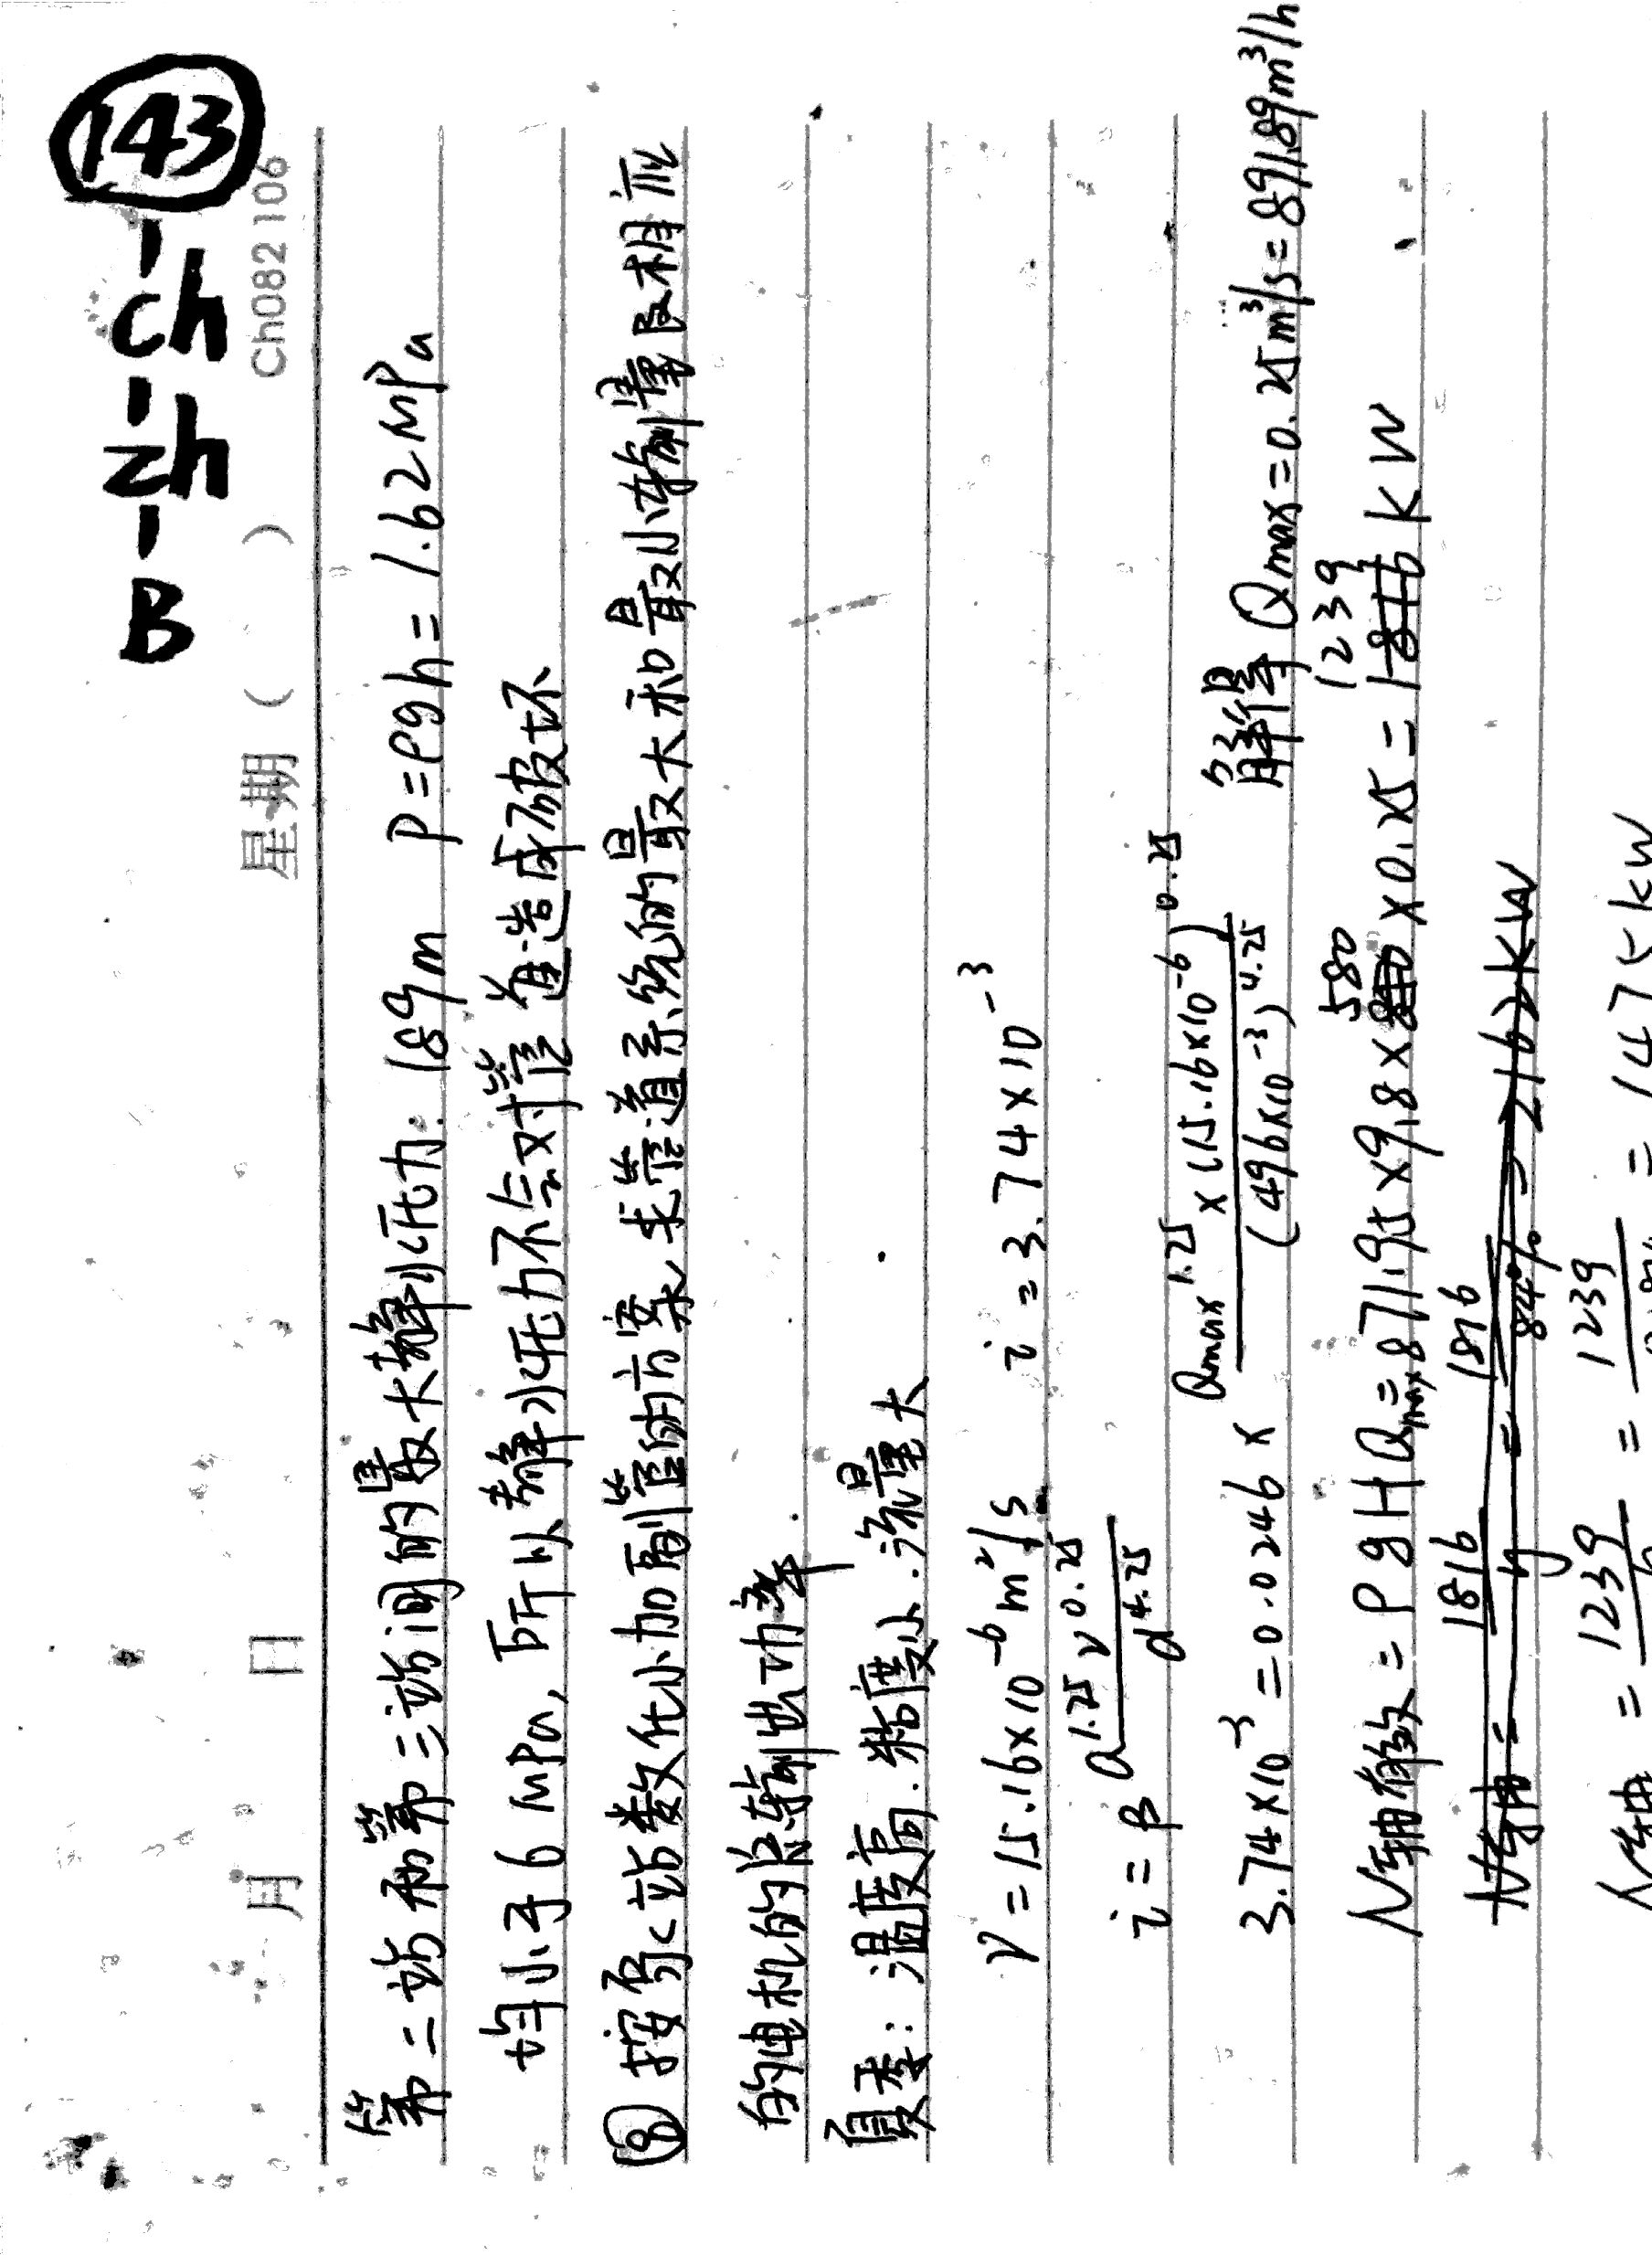 143-ch-zh-B
月 日 星期( ) Ch082106
第二站和第三站间的最大静水压力: 189m P=ρgh=1.62MPa
均小于6MPa, 所以静水压力不会对管道造成破坏
⑧ 按泵站数化小加副管的方案, 求管道系统的最大和最小输量及相应
的电机的总输出功率.
夏季: 温度高. 粘度小. 流量大
ν=15.16×10⁻⁶m²/s i=3.74×10⁻³
i=β Q^1.75 ν^0.25 / d^4.75
3.74×10⁻³=0.0246× Qmax^1.75 ×(15.16×10⁻⁶)^0.25 / (496×10⁻³)^4.75 解得 Qmax=0.25m³/s=891.89m³/h
N轴有效=ρgHQmax=871.95×9.8×580×0.25=1239kW
N轴= 1816/η = 1816/84% =2162kW
N轴 = 1239/η = 1239/84% = 1475kW